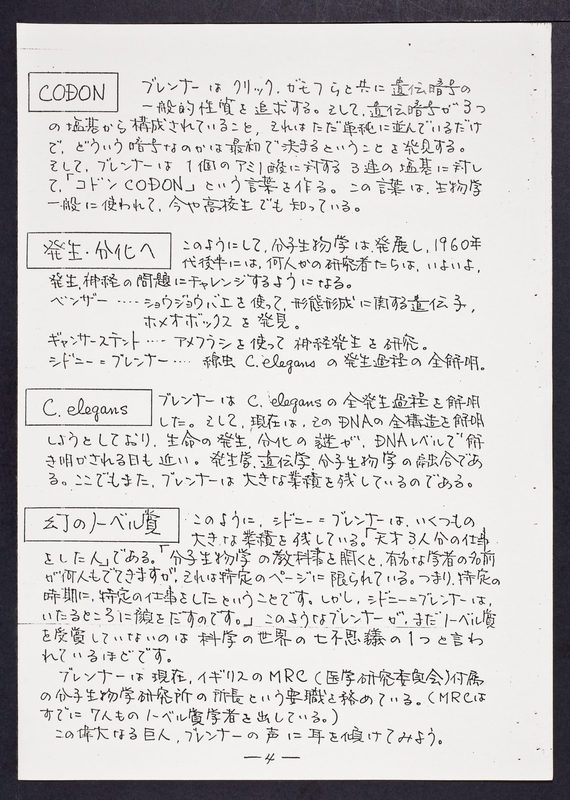 CODON
ブレンナーは クリック、ガモフらと共に 遺伝暗号の
一般的性質を追求する。そして、遺伝暗号が3つ
の塩基から構成されていること、それはただ単純に並んでいるだけ
で、どういう暗号なのかは最初で決まるということを発見する。
そして、ブレンナーは 1個のアミノ酸に対する 3連の塩基に対し
て、「コドン CODON」という言葉を作る。この言葉は、生物学
一般に使われて、今や高校生でも知っている。
発生・分化へ
このようにして、分子生物学は発展し、1960年
代後半には、何人かの研究者たちは、いよいよ、
発生、神経の問題にチャレンジするようになる。
ベンザー ‥‥ ショウジョウバエを使って、形態形成に関する遺伝子、
ホメオボックスを発見。
ギャンサーステント‥‥ アメフラシを使って 神経発生を研究。
シドニー=ブレンナー‥‥ 線虫 C. elegans の発生過程の全解明。
C. elegans
ブレンナーは C. elegansの全発生過程を解明
した。そして、現在は、そのDNAの全構造を解明
しようとしており、生命の発生、分化の謎が、DNAレベルで解
き明かされる日も近い。発生学、遺伝学、分子生物学の融合であ
る。ここでもまた、ブレンナーは大きな業績を残しているのである。
幻のノーベル賞
このように、シドニー=ブレンナーは、いくつもの
大きな業績を残している。「天才3人分の仕事
をした人」である。「分子生物学の教科書を開くと、有名な学者の名前
が何人もでてきますが、それは特定のページに限られている。つまり、特定の
時期に、特定の仕事をしたということです。しかし、シドニー=ブレンナーは、
いたるところに顔をだすのです。」このようなブレンナーが、まだノーベル賞
を受賞していないのは 科学の世界の七不思議の1つと言わ
れているほどです。
ブレンナーは現在、イギリスのMRC（医学研究委員会）付属
の分子生物学研究所の所長という要職を務めている。（MRCは
すでに7人ものノーベル賞学者を出している。）
この偉大なる巨人、ブレンナーの声に耳を傾けてみよう。
—4—